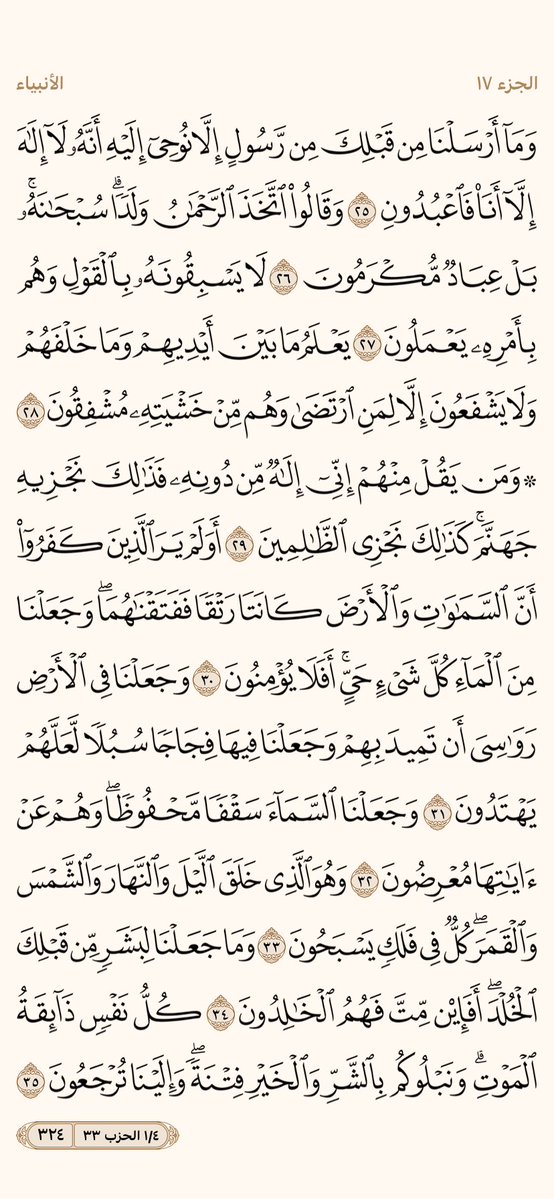 الجزء ١٧
الأنبياء
وَمَآ أَرۡسَلۡنَا مِن قَبۡلِكَ مِن رَّسُولٍ إِلَّا نُوحِيٓ إِلَيۡهِ أَنَّهُۥ لَآ إِلَٰهَ
إِلَّآ أَنَا۠ فَٱعۡبُدُونِ ٢٥ وَقَالُواْ ٱتَّخَذَ ٱلرَّحۡمَٰنُ وَلَدٗاۗ سُبۡحَٰنَهُۥۚ
بَلۡ عِبَادٞ مُّكۡرَمُونَ ٢٦ لَا يَسۡبِقُونَهُۥ بِٱلۡقَوۡلِ وَهُم
بِأَمۡرِهِۦ يَعۡمَلُونَ ٢٧ يَعۡلَمُ مَا بَيۡنَ أَيۡدِيهِمۡ وَمَا خَلۡفَهُمۡ
وَلَا يَشۡفَعُونَ إِلَّا لِمَنِ ٱرۡتَضَىٰ وَهُم مِّنۡ خَشۡيَتِهِۦ مُشۡفِقُونَ ٢٨
۞ وَمَن يَقُلۡ مِنۡهُمۡ إِنِّيٓ إِلَٰهٞ مِّن دُونِهِۦ فَذَٰلِكَ نَجۡزِيهِ
جَهَنَّمَۚ كَذَٰلِكَ نَجۡزِي ٱلظَّٰلِمِينَ ٢٩ أَوَلَمۡ يَرَ ٱلَّذِينَ كَفَرُوٓاْ
أَنَّ ٱلسَّمَٰوَٰتِ وَٱلۡأَرۡضَ كَانَتَا رَتۡقٗا فَفَتَقۡنَٰهُمَاۖ وَجَعَلۡنَا
مِنَ ٱلۡمَآءِ كُلَّ شَيۡءٍ حَيٍّۚ أَفَلَا يُؤۡمِنُونَ ٣٠ وَجَعَلۡنَا فِي ٱلۡأَرۡضِ
رَوَٰسِيَ أَن تَمِيدَ بِهِمۡ وَجَعَلۡنَا فِيهَا فِجَاجٗا سُبُلٗا لَّعَلَّهُمۡ
يَهۡتَدُونَ ٣١ وَجَعَلۡنَا ٱلسَّمَآءَ سَقۡفٗا مَّحۡفُوظٗاۖ وَهُمۡ عَنۡ
ءَايَٰتِهَا مُعۡرِضُونَ ٣٢ وَهُوَ ٱلَّذِي خَلَقَ ٱلَّيۡلَ وَٱلنَّهَارَ وَٱلشَّمۡسَ
وَٱلۡقَمَرَۖ كُلّٞ فِي فَلَكٖ يَسۡبَحُونَ ٣٣ وَمَا جَعَلۡنَا لِبَشَرٖ مِّن قَبۡلِكَ
ٱلۡخُلۡدَۖ أَفَإِيْن مِّتَّ فَهُمُ ٱلۡخَٰلِدُونَ ٣٤ كُلُّ نَفۡسٖ ذَآئِقَةُ
ٱلۡمَوۡتِۗ وَنَبۡلُوكُم بِٱلشَّرِّ وَٱلۡخَيۡرِ فِتۡنَةٗۖ وَإِلَيۡنَا تُرۡجَعُونَ ٣٥
١/٤ الحزب ٣٣
٣٢٤